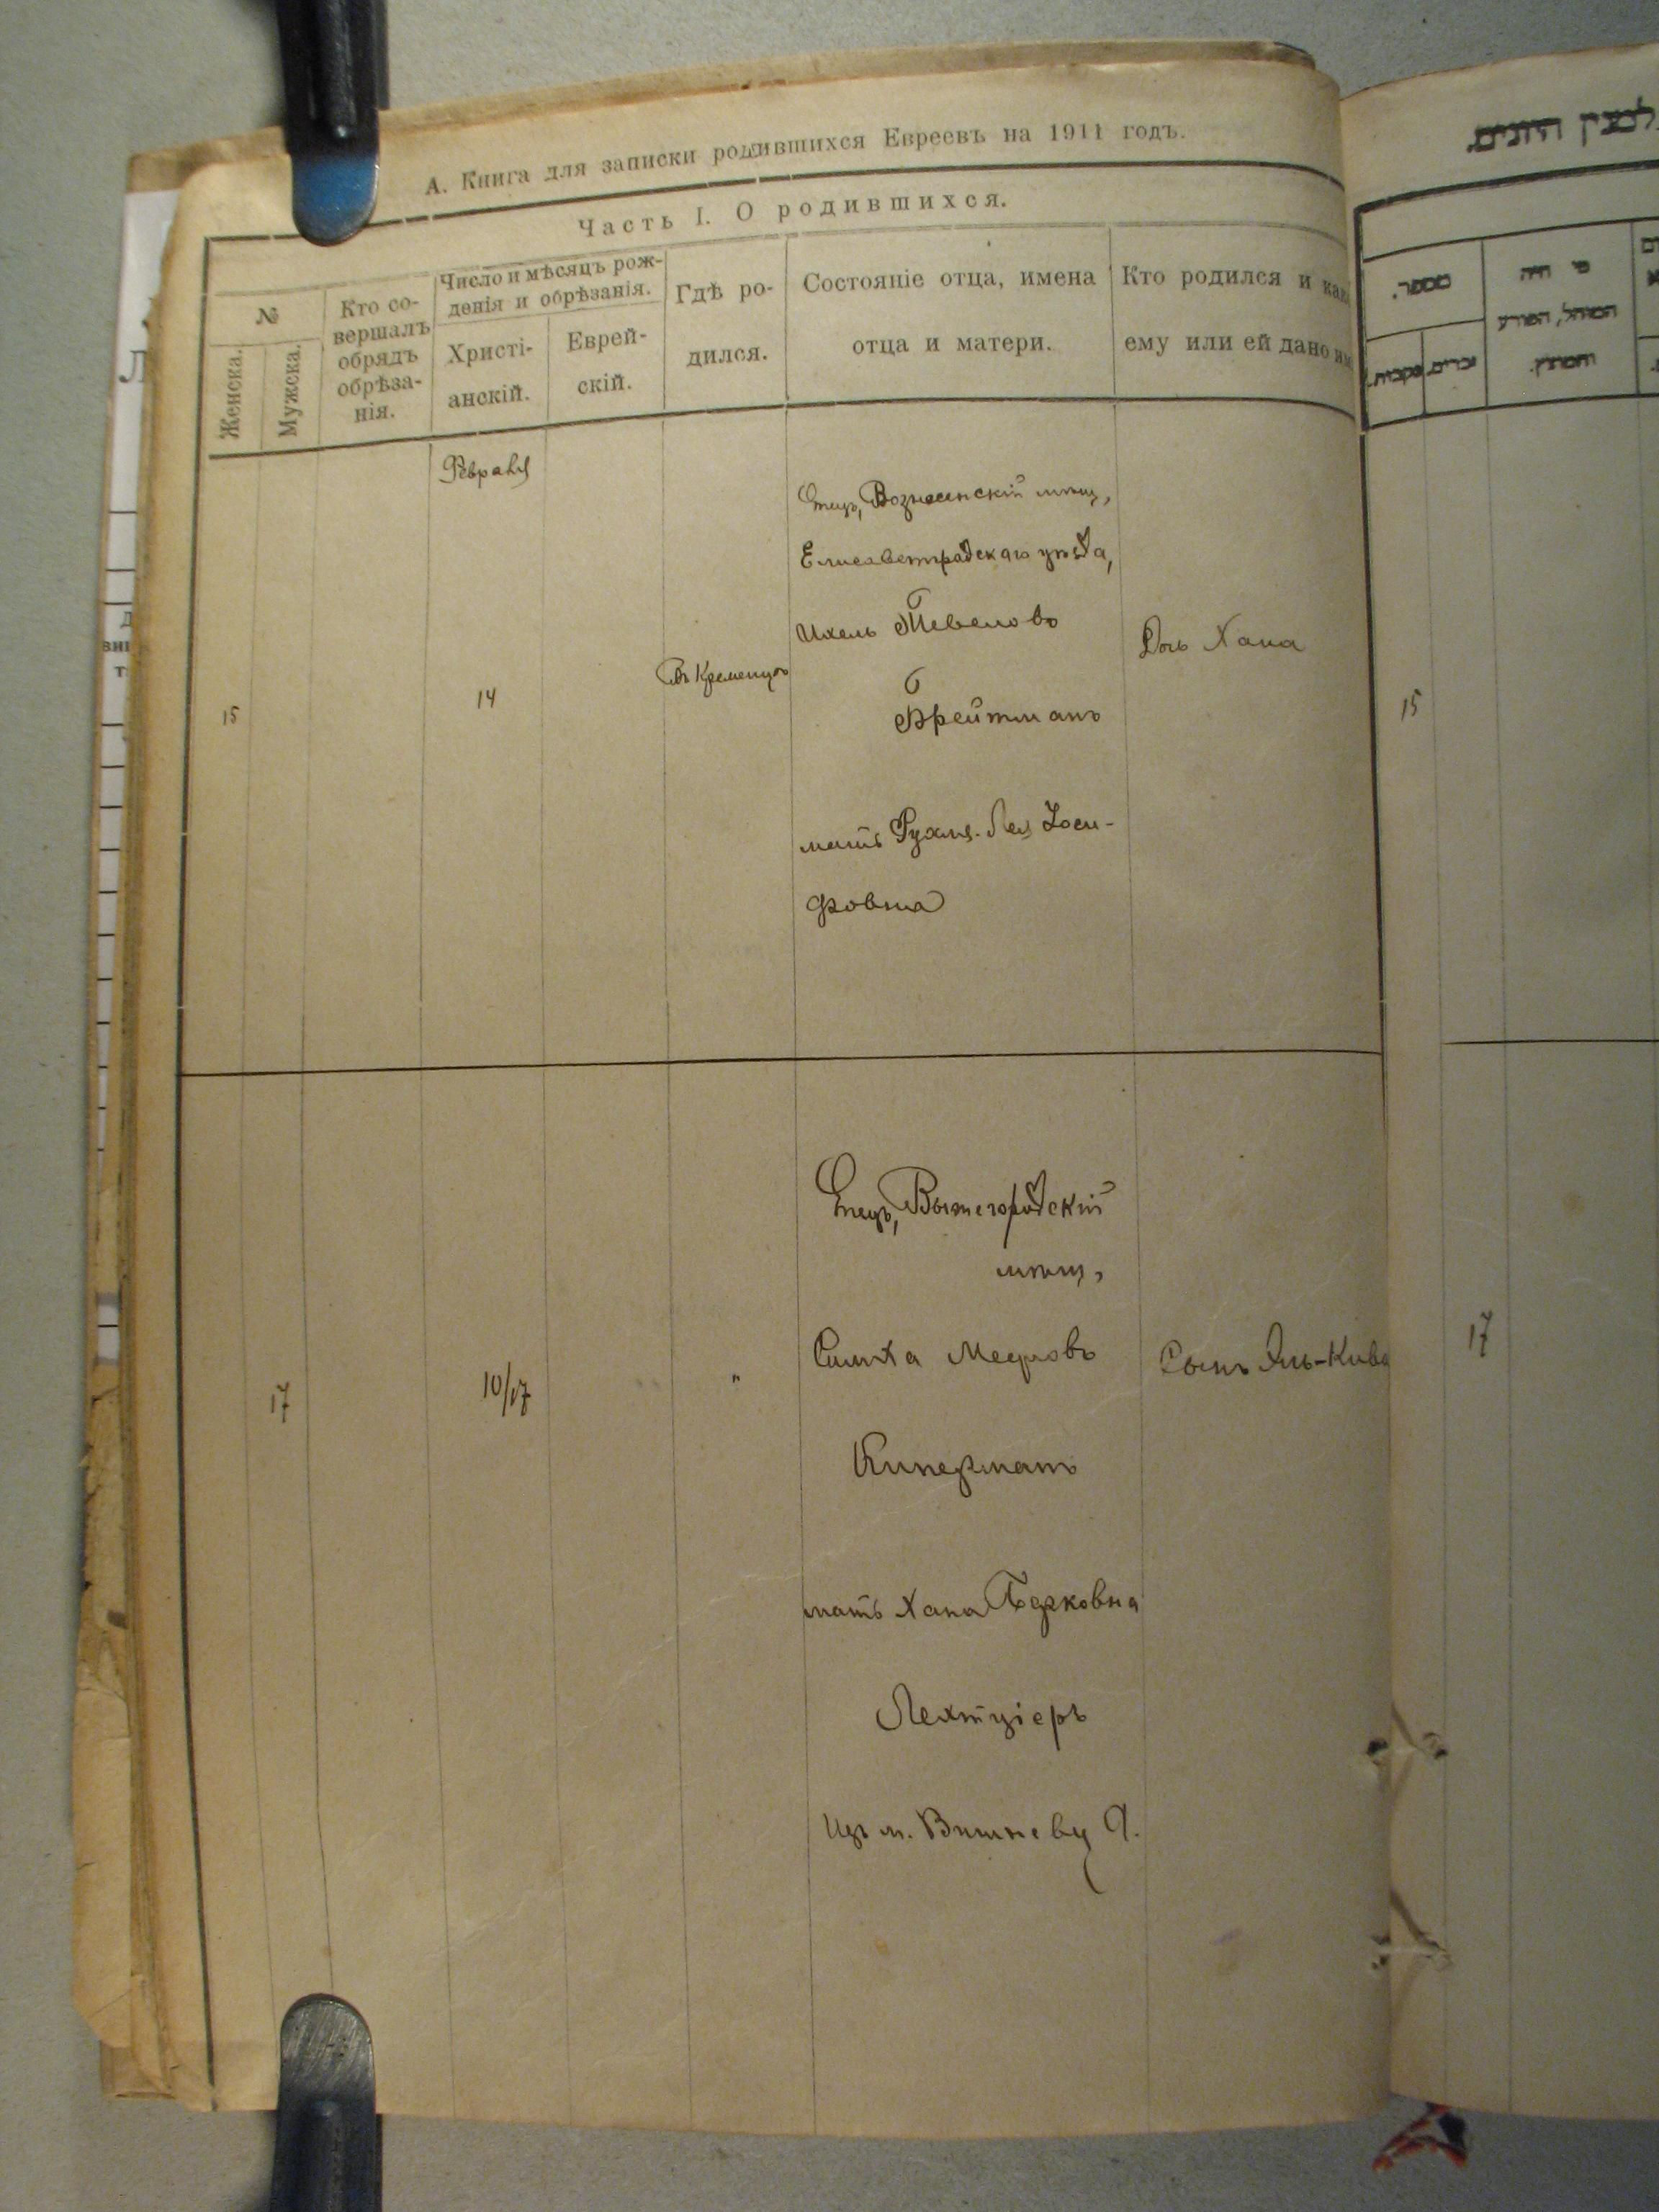 А. Книга для записки родившихся Евреевъ на 1911 годъ.
Часть I. О родившихся.
№
Женска.
Мужска.
Кто со-
вершалъ
обрядъ
обрѣза-
нія.
Число и мѣсяцъ рож-
денія и обрѣзанія.
Христі-
анскій.
Еврей-
скій.
Гдѣ ро-
дился.
Состояніе отца, имена
отца и матери.
Кто родился и
ему или ей дано
Февраля
15
14
Въ Кременцѣ
Отецъ, Вознесенскій мѣщ,
Елисаветградскаго уѣзда,
Ихель Тевеловъ
Брейтманъ
мать Рухля-Лея Іоси-
фовна
Дочь Хана
17
10/17
"
Отецъ, Вышегородскій
мѣщ,
Симха Мееровъ
Киперманъ
мать Хана Берковна
Лехтціеръ
изъ м. Вишневца.
Сынъ
מספר.
זכרים.
נקבות.
מי היה
המוהל, הפורע
והמוצץ.
15
17